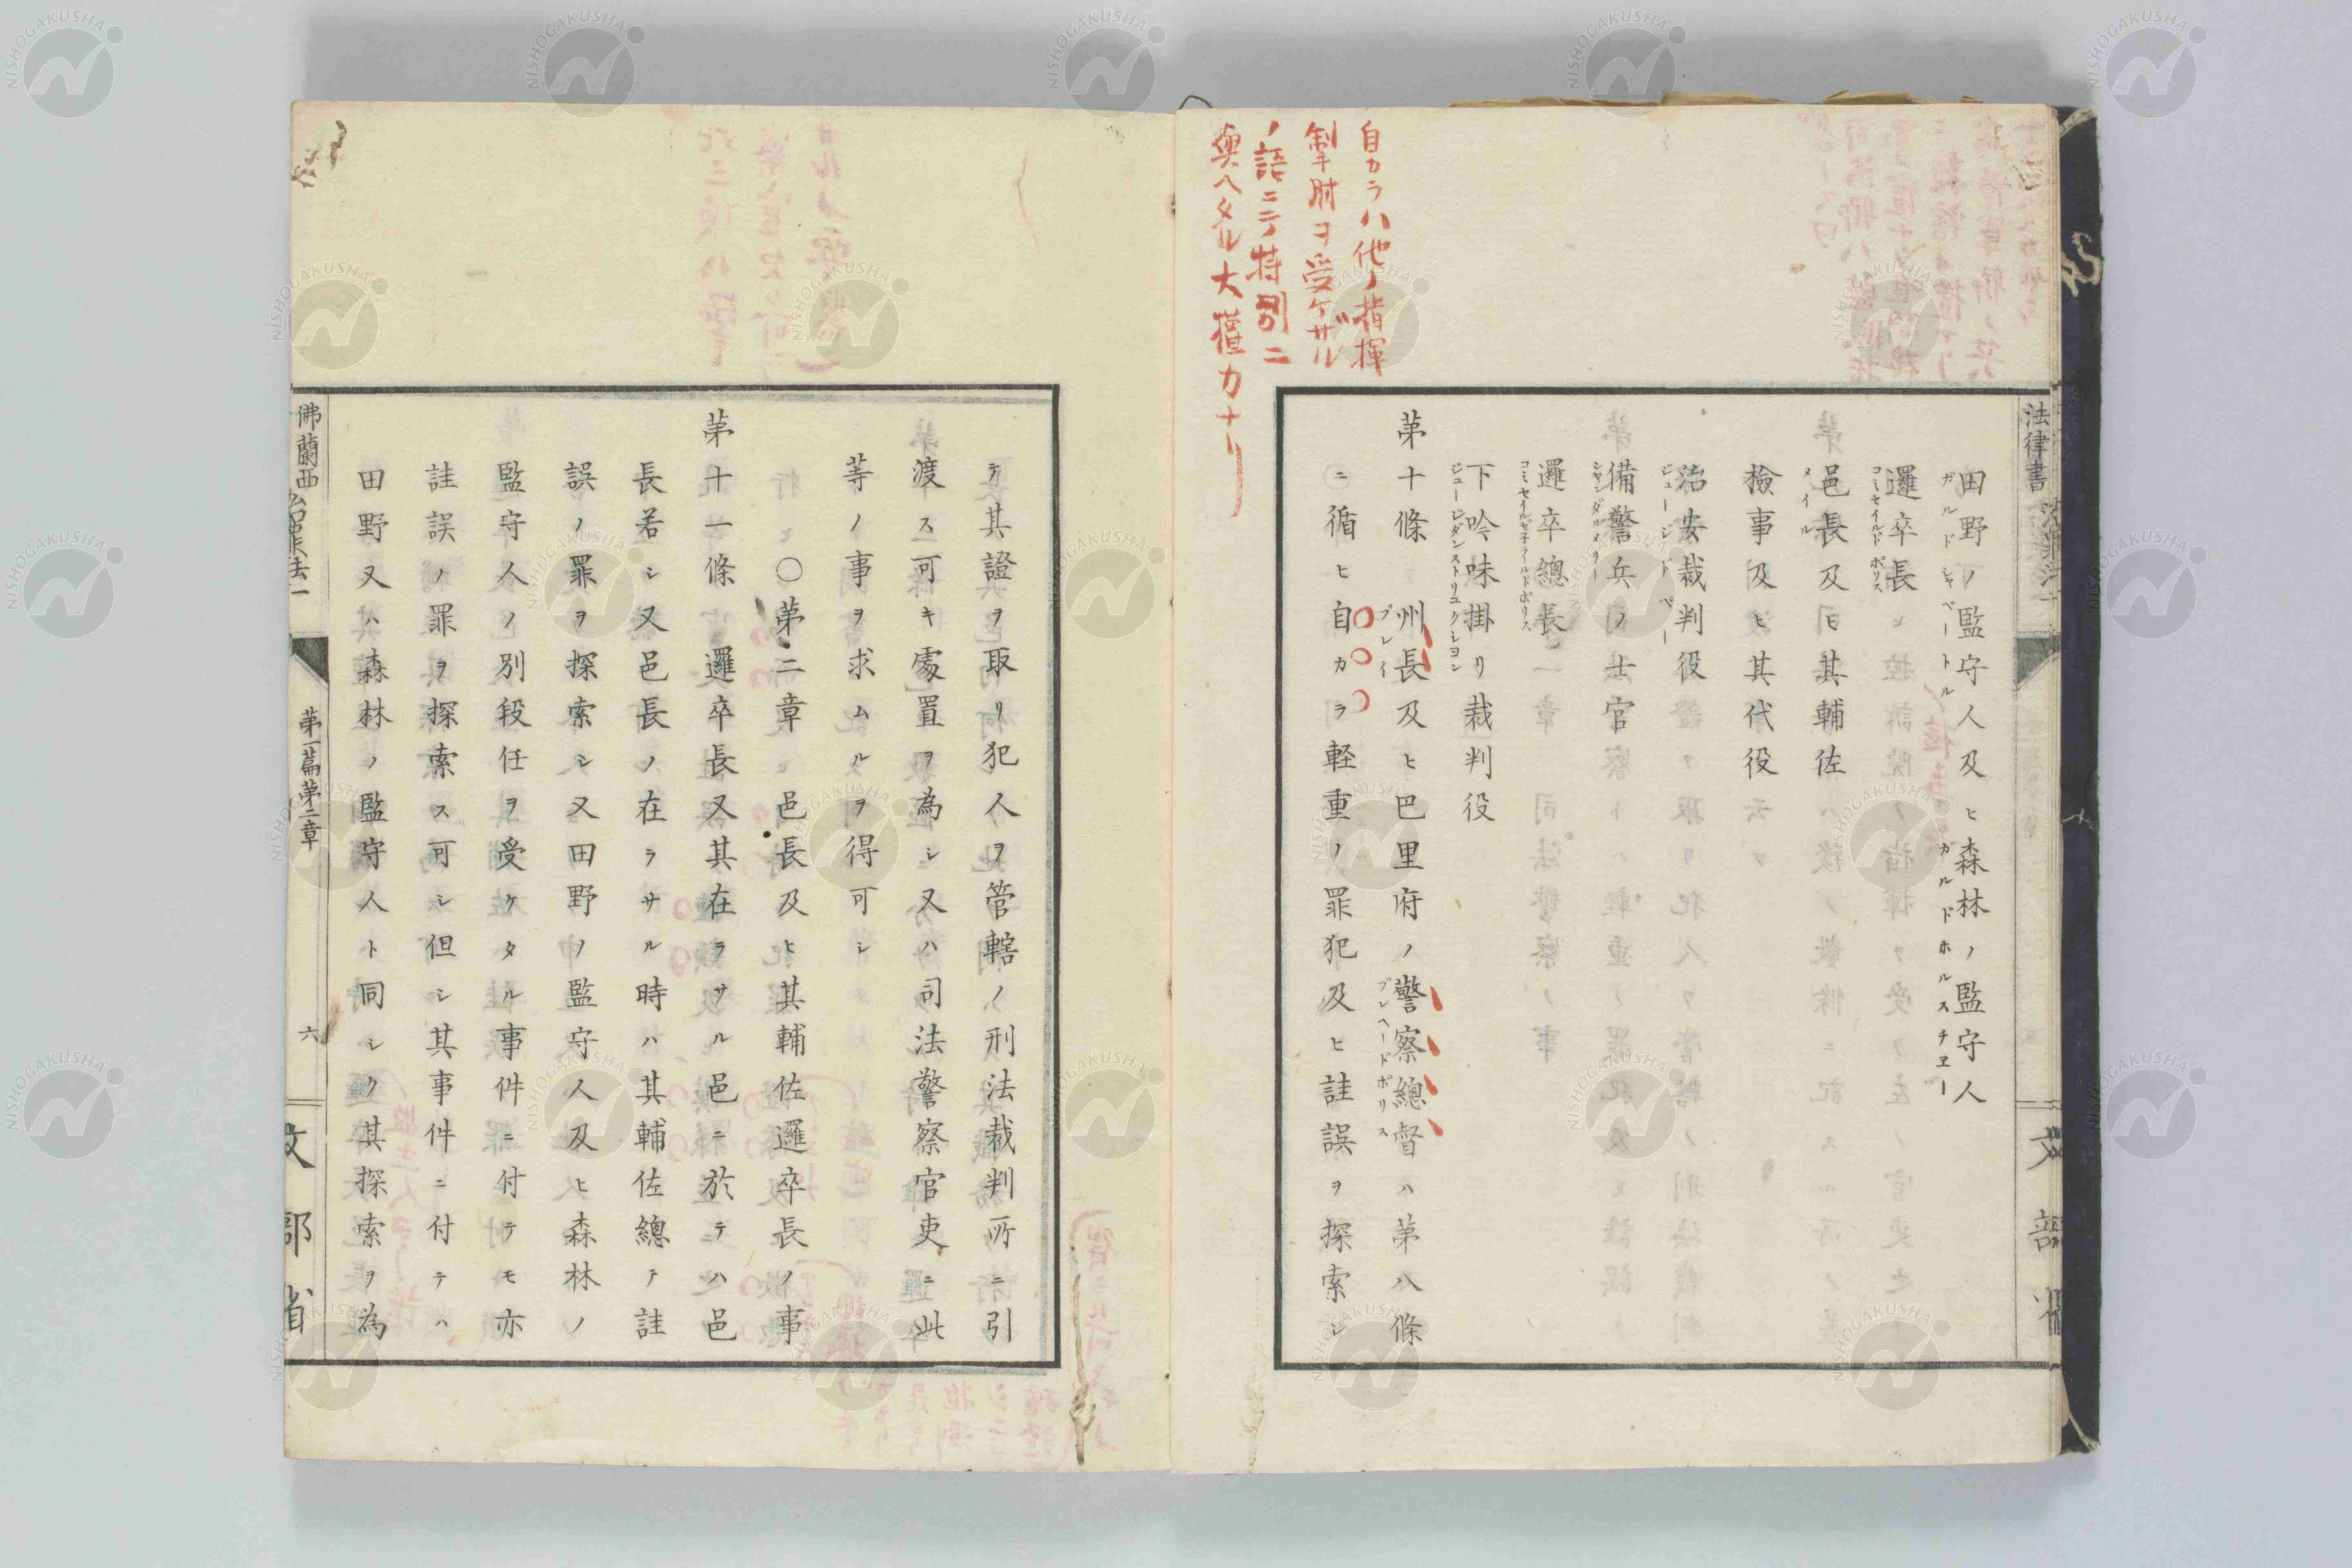 法律書
文部省
田野ノ監守人及ヒ森林ノ監守人
ガルドシャペートル
ガルドホルスチヱー
邏卒長
コミセイルドポリス
邑長及ヒ其輔佐
メイル
撿事及ヒ其代役
治安裁判役
ジュージドペー
備警兵ノ士官
シャンダルメリー
邏卒總長
下吟味掛リ裁判役
ジュージダンストリユクシヨン
第十條 州長及ヒ巴里府ノ警察總督ハ第八條
プレイ
プレヘードポリス
ニ循ヒ自カラ軽重ノ罪犯及ヒ註誤ヲ探索シ
自カラハ他ノ指揮
掣肘ヲ受ケザル
ノ語ニ〆特別ニ
與ヘタル大權力ナリ
テ其證ヲ取リ犯人ヲ管轄ノ刑法裁判所ニ引
渡ス可キ處置ヲ為シ又ハ司法警察官吏ニ此
等ノ事ヲ求ムルヲ得可シ
〇第二章 邑長及ヒ其輔佐邏卒長ノ事
第十一條 邏卒長又其在ラサル邑ニ於テハ邑
長若シ又邑長ノ在ラサル時ハ其輔佐總テ註
誤ノ罪ヲ探索シ又田野ノ監守人及ヒ森林ノ
監守人ノ別段任ヲ受ケタル事件ニ付テモ亦
註誤ノ罪ヲ探索ス可シ但シ其事件ニ付テハ
田野又ハ森林ノ監守人ト同シク其探索ヲ為
佛蘭西治罪法一
第一篇第二章
六
文部省